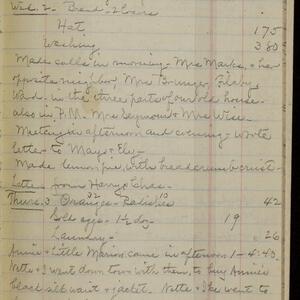 Wed. 2 - Bread - 2 loaves
Hat 175
Washing 3 80
Made calls in morning - Mrs Marks, & her
opposite neighbor, Mrs
Ward. in the three parts of our old house.
also in P.M. Mrs Seymour & Mrs Wise.
Meeting in afternoon and evening - wrote
letter to Mays & Ely -
Made lemon pie, with bread crumb crust -
Letter from Harry & Chas.
Thurs. 3 Oranges 32 - Radishes 10 42
doz eggs - 1½ do - 19
Laundry - 26
Annie & Little Marion came in afternoon 1 - 4:40.
Nette & I went down town with them, to buy Annie
black silk waist & jacket. Nette & I went to